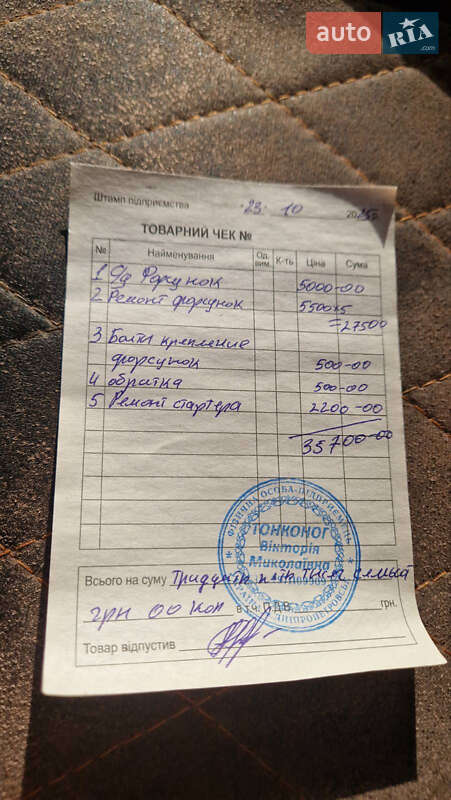 auto RIA
.com
Штамп підприємства 23. 10 2025
ТОВАРНИЙ ЧЕК №
№ Найменування Од. вим. К-ть Ціна Сума
1 С/у Форсунок 5000-00
2 Ремонт форсунок 5500x5
=27500
3 Болты крепление
форсунок 500-00
4 обратка 500-00
5 Ремонт стартера 2200-00
35700-00
ФІЗИЧНА ОСОБА-ПІДПРИЄМЕЦЬ
ТОНКОНОГ
Вікторія
Миколаївна
Всього на суму Тридцять п'ять тисяч сімсот
грн 00 коп в т.ч. ПДВ грн.
Товар відпустив